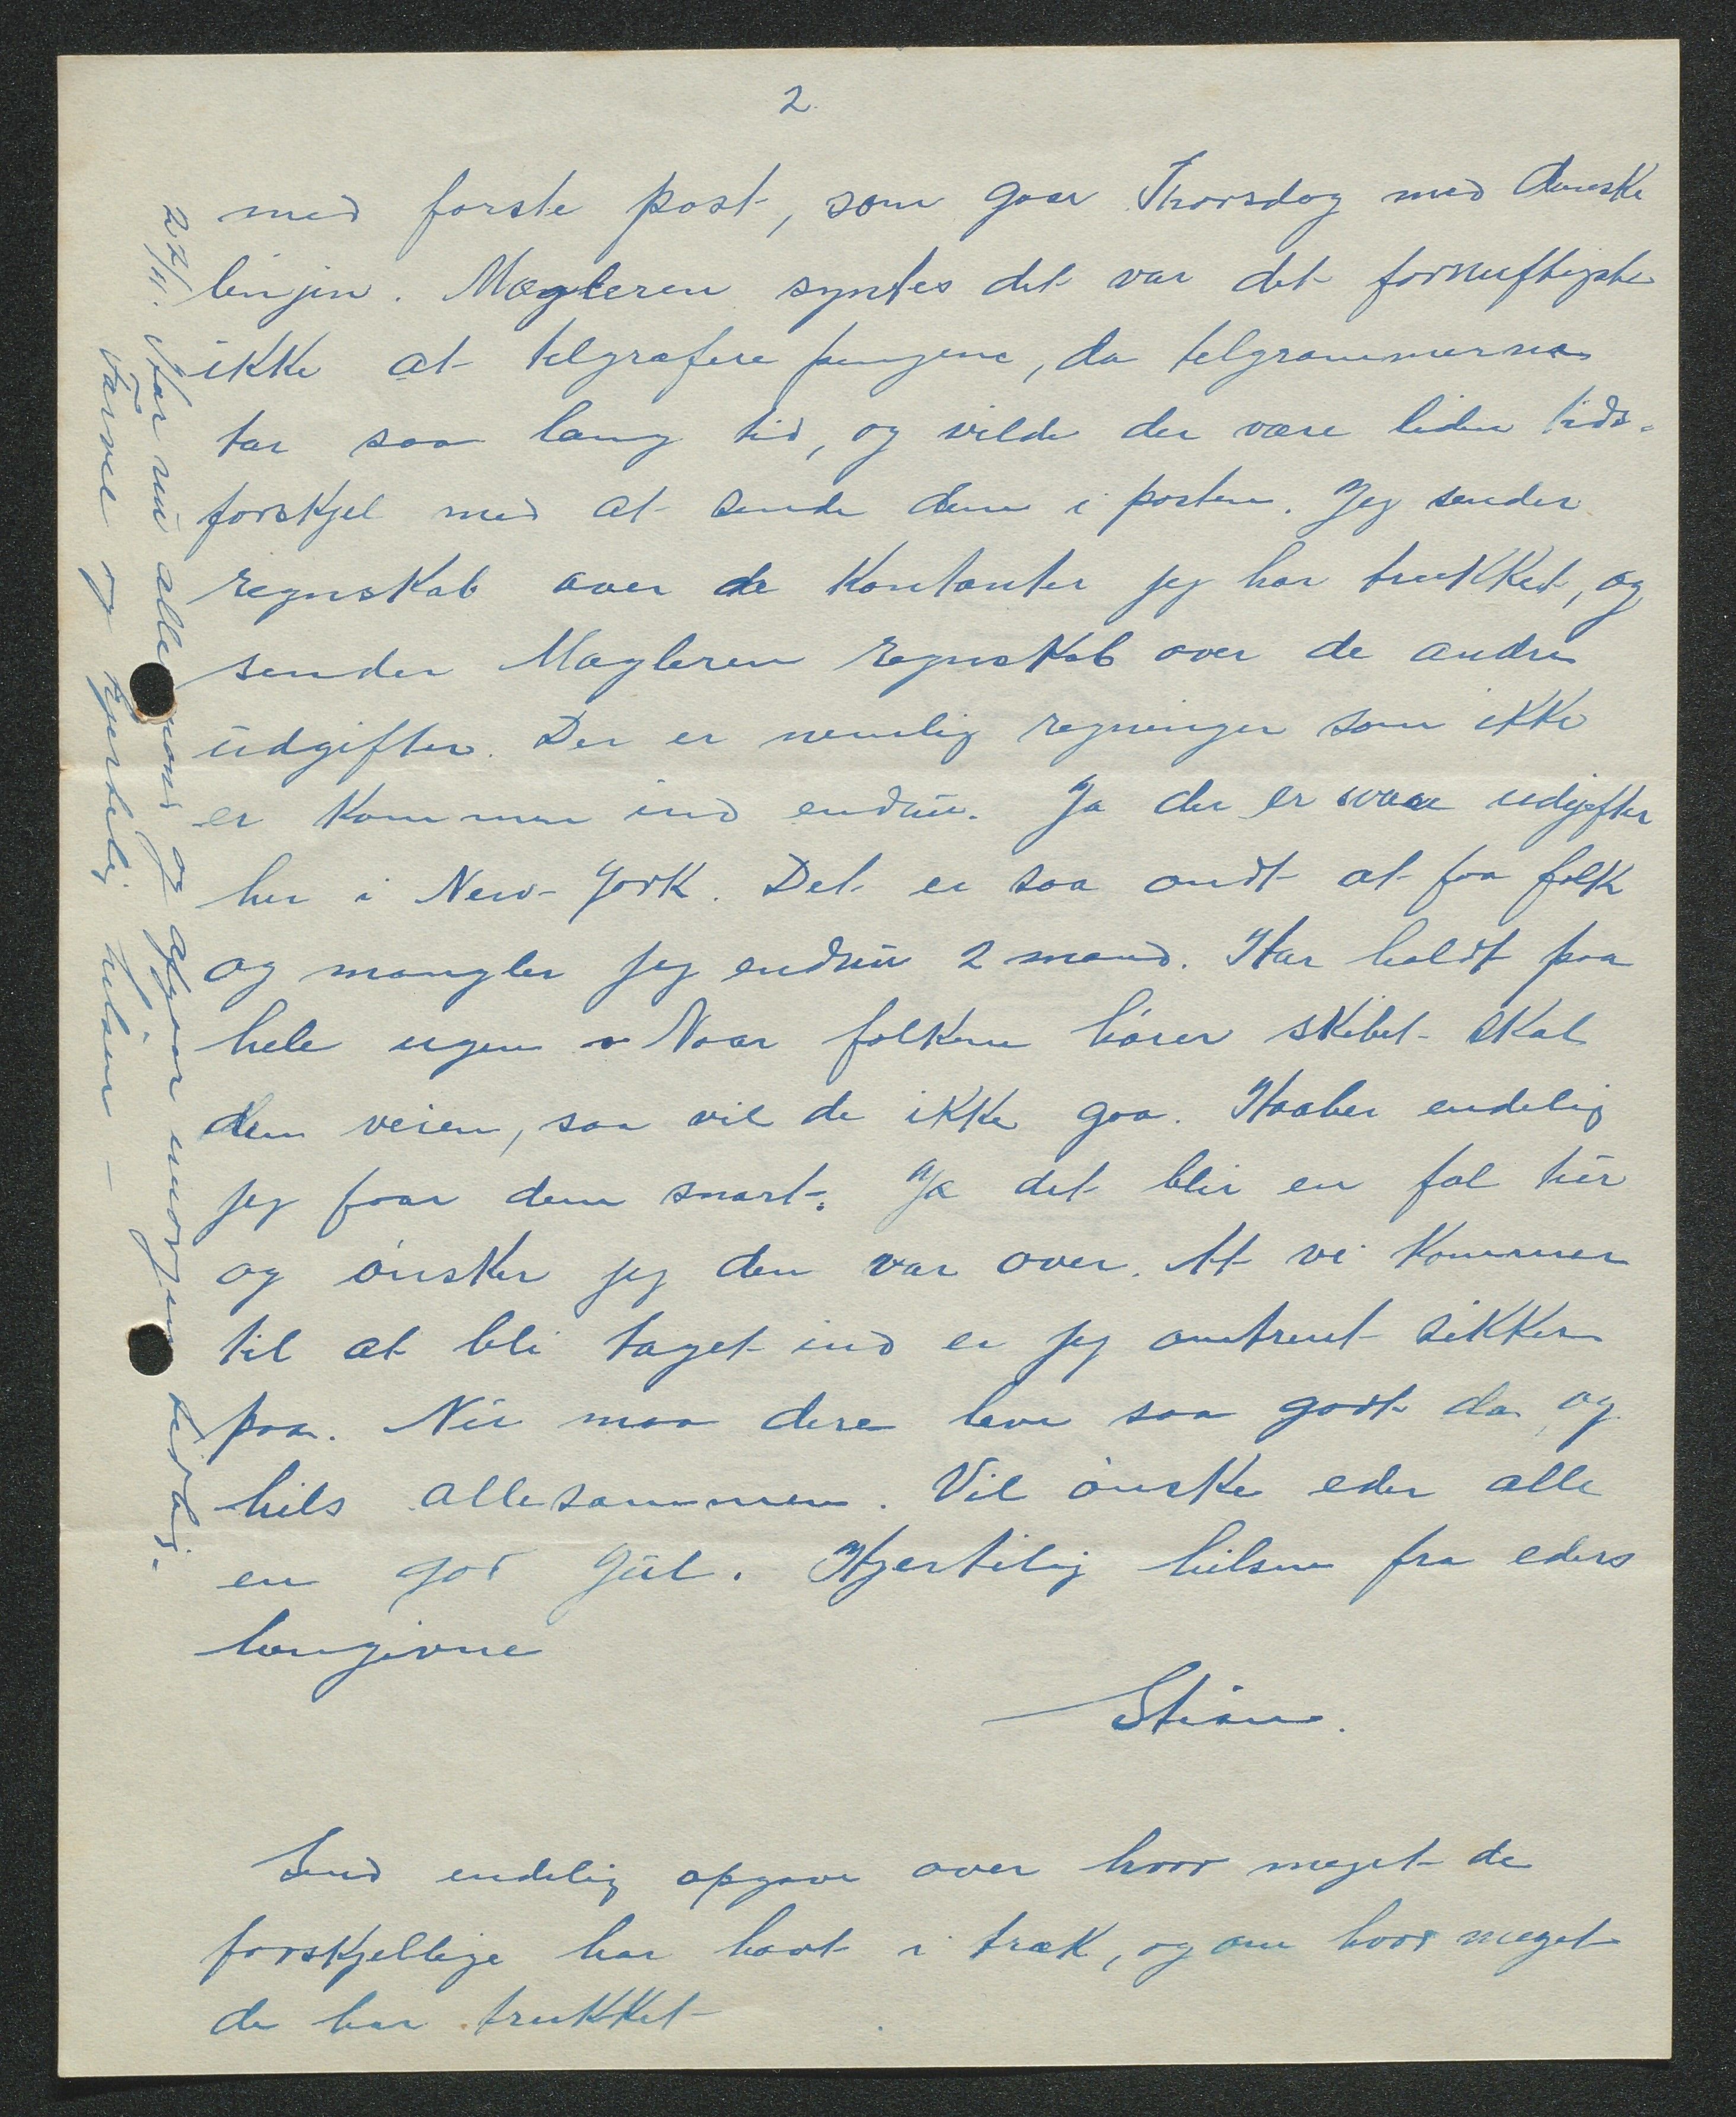 2
med første post, som gaar Thorsdag med danske
linjen. Mægleren syntes det var det fornuftigste
ikke at telgrafere pengene, da telgrammerne
tar saa lang tid, og vilde der være liden tids-
forskjel med at sende dem i posten. Jeg sender
regnskab over de Kontanter jeg har trukket, og
sender Mægleren regnskab over de andre
udgifter. Der er nemlig regninger som ikke
er kommen ind endnu. Ja der er svare udgifter
her i New-York. Det er saa ondt at faa folk
og mangler jeg endnu 2 mand. Har holdt paa
hele ugen. Naar folkene hører skibet skal
den veien, saa vil de ikke gaa. Haaber endelig
jeg faar dem snart. Ja det blir en fæl tur
og ønsker jeg den var over. At vi kommer
til at bli taget ind er jeg omtrent sikker
paa. Nu maa dere leve saa godt da og
hils allesammen. Vil ønske eder alle
en god Jul. Hjertelig hilsen fra eders
hengivne
Stian.
Send endelig opgave over hvor meget de
forskjellige har havt i træk, og om hvor meget
de har trukket
27/11. Har nu alle mand og afgaar imorgen tidlig.
Farvel og hjertelig hilsen –